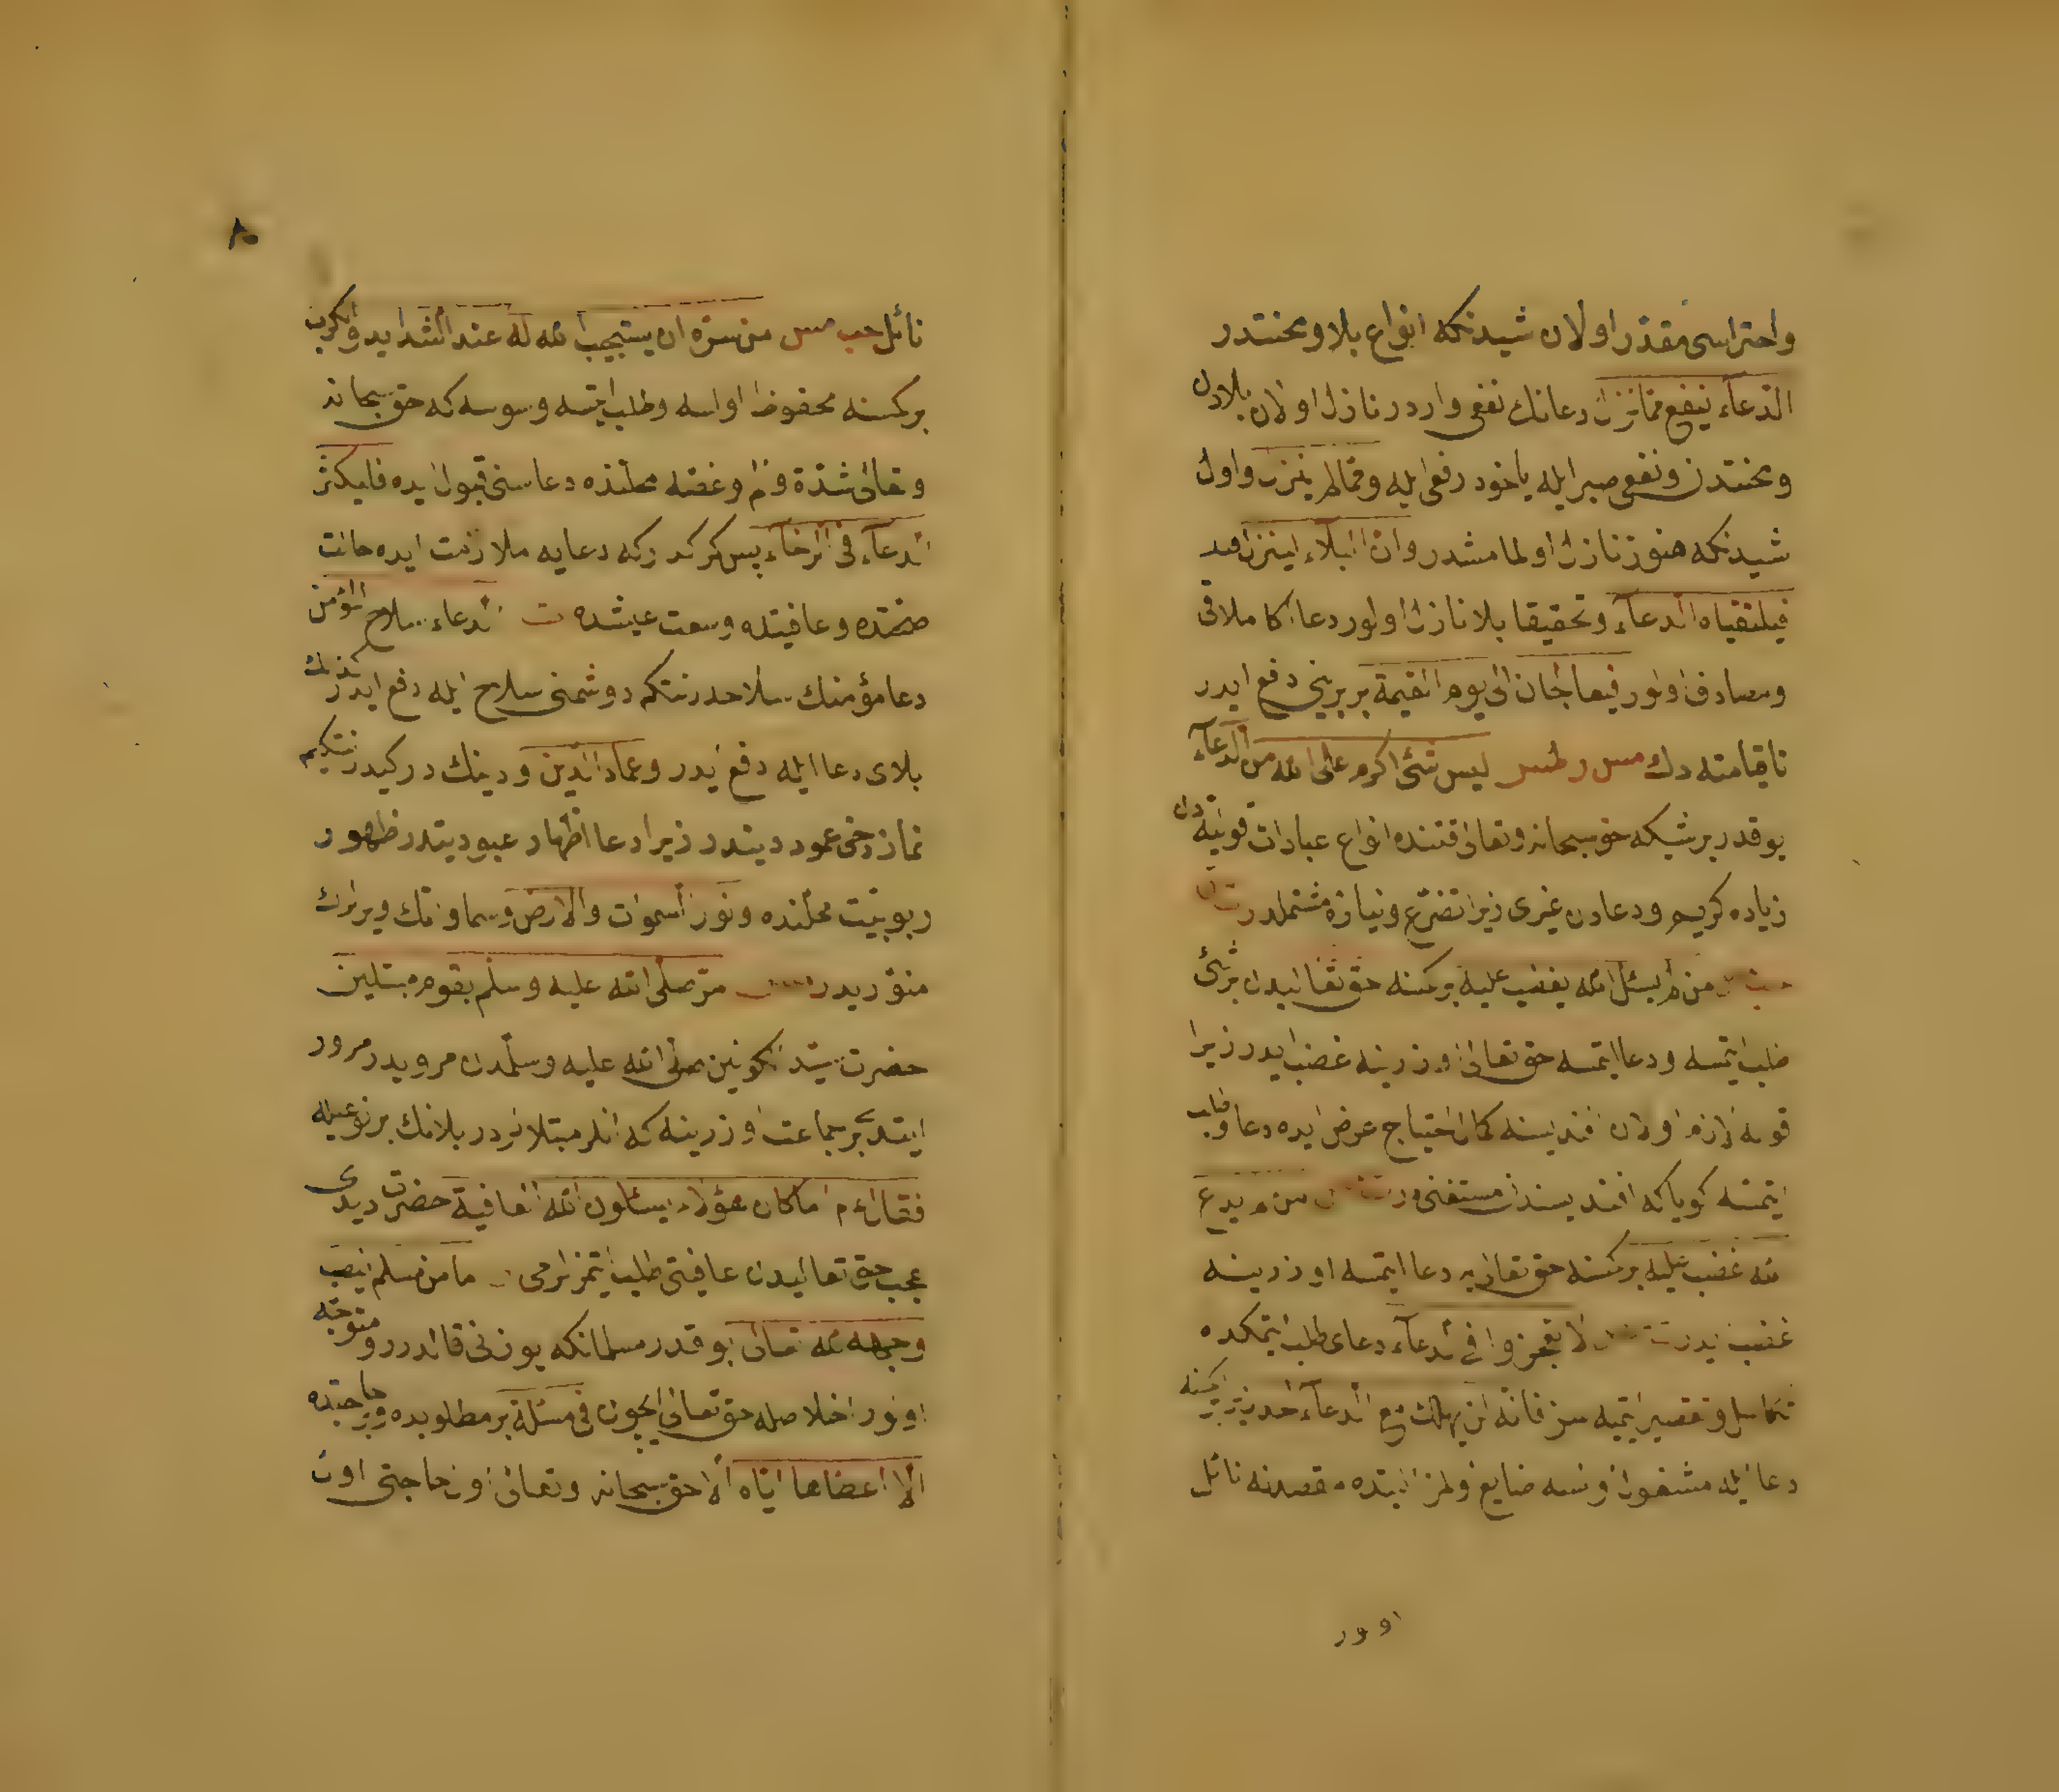 واحتراسی مقدر اولان شیدنکه انواع بلا و محنتدر
الدعاء ینفع مما نزل دعانك نفعی واردر نازل اولان بلادن
و محنتدن و نفعی صبر ایله یاخود رفعی ایله و مما لم ینزل و اول
شیدنکه هنوز نازل اولمامشدر وان البلاء لینزل
فیلتقیاه الدعاء و تحقیقا بلا نازل اولور دعا اكا ملاقی
و مصادف اولور فیعتلجان الی یوم القیمة بربرینی دفع ایدر
تا قیامته دك مس لیس شئ اكرم علی الله من الدعاء
یوقدر بر شیكه حق سبحانه وتعالی قتنده انواع عبادات قولیه دن
زیاده كریم و دعادن غیری زیرا تضرع و نیازه مشتملدر ت
من لم یسئل الله یغضب علیه بر كسنه حق تعالیدن بر شئ
طلب ایتمسه و دعا ایتمسه حق تعالی اوزرینه غضب ایدر زیرا
قوله لازم اولان افندیسنه كمال احتیاج عرض ایده دعا و طلب
ایتمسه كویا كه افندیسندن مستغنی در من لم یدع
الله غضب علیه بر كسنه حق تعالی یه دعا ایتمسه اوزرینه
غضب ایدر لا تعجزوا فی الدعاء دعای طلب ایتمكده
تكاسل و تقصیر ایتمیه سز فانه لن یهلك مع الدعاء احد زیرا بر كسنه
دعا ایله مشغول اولسه ضایع اولمز البته مقصدنه نائل
اولور
نائل حب مس من سره ان یستجیب الله له عند الشداید والكرب
بر كسنه محظوظ اولسه و طلب ایتسه و سوسه كه حق سبحانه
و تعالی شدة و غم و غصه محلنده دعاسنی قبول ایده فلیكثر
الدعاء فی الرخاء پس كركدركه دعایه ملازمت ایده حالت
صحتده و عافیتده و سعت عیشده ت الدعاء سلاح المؤمن
دعا مؤمنك سلاحدر نتكم دوشمنی سلاح ایله دفع ایدر
بلای دعا ایله دفع ایدر و عماد الدین و دینك دركیدر نتكیم
نماز دخی عمود دیندر زیرا دعا اظهار عبودیتدر ظهور
ربوبیت محلنده و نور السموات والارض و سماواتك و یرلرك
منوریدر مر صلی الله علیه وسلم بقوم مبتلین
حضرت سید الكونین صلی الله علیه وسلمدن مرویدر مرور
ایتدی بر جماعت اوزرینه كه انلر مبتلالردر بلانك بر نوعیله
فقال ءم اما كان هؤلاء یسئلون الله العافیة حضرت دیدی
عجب حق تعالیدن عافیتی طلب ایتمزلرمی ما من مسلم ینصب
وجهه لله تعالی یوقدر مسلمانكه یوزنی قالدرر و متوجه
اولور اخلاصله حق تعالی ایچون فی مسئلة بر مطلوبده و بر حاجتده
الا اعطاها ایاه الا حق سبحانه و تعالی اول حاجتی اول